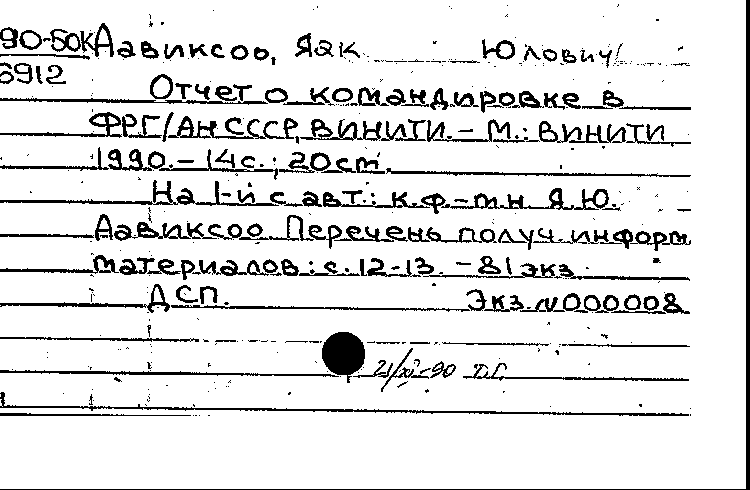 90-50К Аавиксоо, Яак Юлович
6912
Отчет о командировке в
ФРГ/АН СССР, ВИНИТИ. – М.: ВИНИТИ,
1990. – 14 с.; 20 см.
На 1-й с авт.: к.ф.-м.н Я.Ю.
Аавиксоо. Перечень получ. информ
материалов: с. 12-13. – 81 экз.
ДСП. Экз. N000008